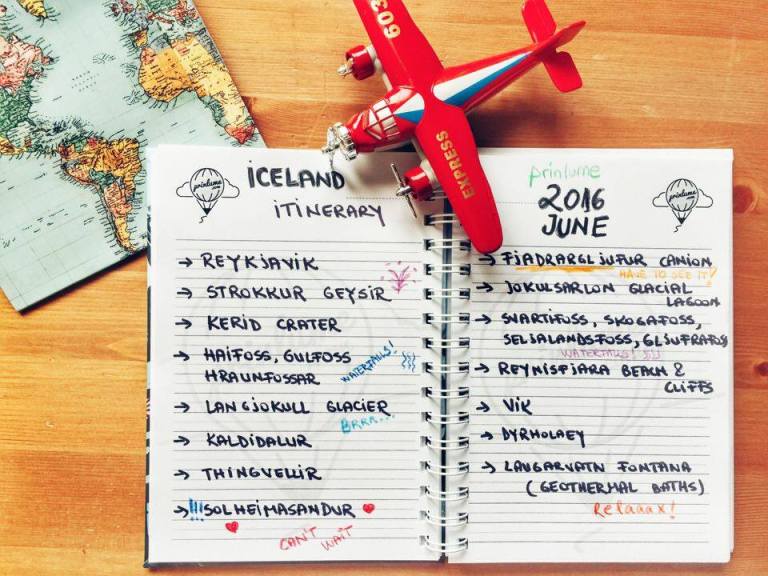 603
EXPRESS
printume
ICELAND
ITINERARY
→ REYKJAVIK
→ STROKKUR GEYSIR
→ KERID CRATER
→ HAIFOSS, GULFOSS
HRAUNFOSSAR
WATERFALLS!
→ LANGJOKULL GLACIER
BRRR...
→ KALDIDALUR
→ THINGVELLIR
→ !!! SOLHEIMASANDUR
CAN'T WAIT
printume
2016
JUNE
printume
→ FJADRARGLJUFUR CANION
HAVE TO SEE IT!
→ JOKULSARLON GLACIAL
LAGOON
→ SVARTIFOSS, SKOGAFOSS,
SELJALANDSFOSS, GLJUFRAFOSS
WATERFALLS!
→ REYNISFJARA BEACH &
CLIFFS
→ VIK
→ DYRHOLAEY
→ LAUGARVATN FONTANA
(GEOTHERMAL BATHS)
Relaaax!